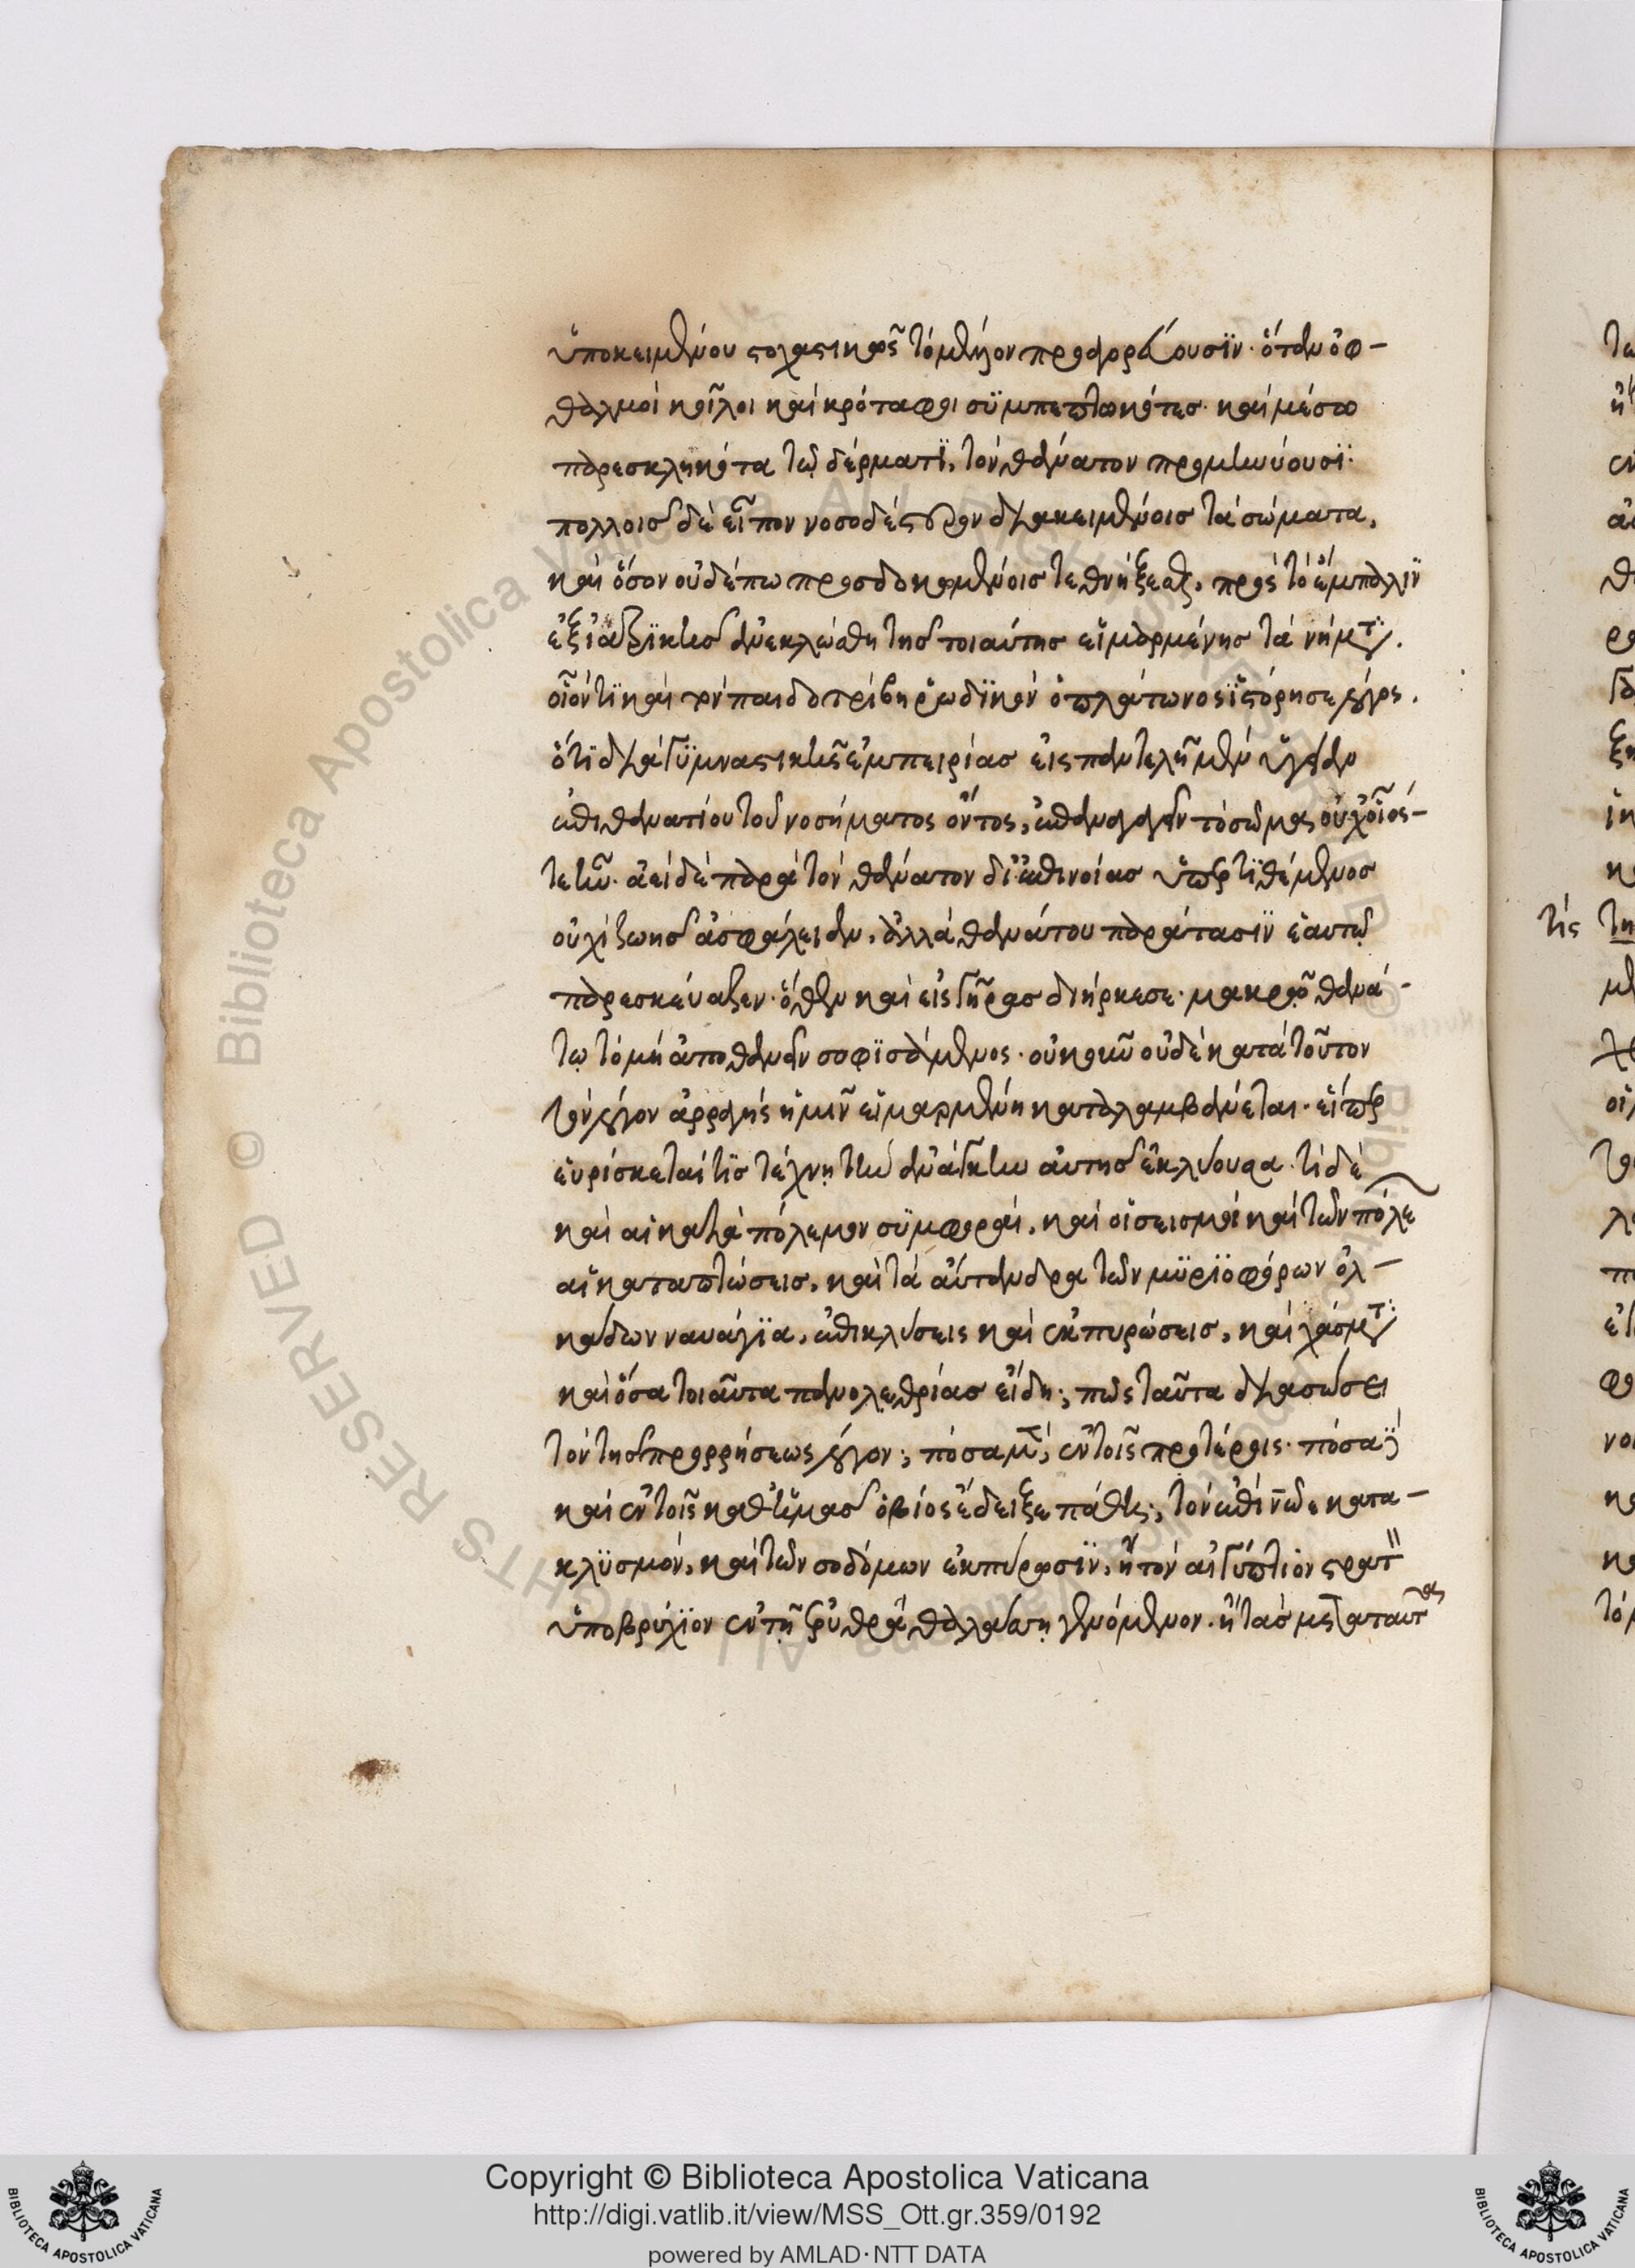 ὑποκειμένου στοχαστικῶς τὸ μέλλον προφοράζουσϊν· ὅταν ὀφ-
θαλμοὶ κοῖλοι καὶ κρόταφοι σϋμπεπτωκότες· καὶ μέσω
παρεσκληκότα τῷ δέρματϊ, τὸν θάνατον προμηνύουσϊ·
πολλοῖς δὲ εἶπον νοσοδέστερον διακειμένοις τὰ σώματα,
καὶ ὅσον οὐδέπω προσδοκωμένοις τεθνήξεσθαι, πρὸς τὸ ἔμπαλϊν
ἐξ ἰατρϊκῆς ἀνεκλώσθη τῆς τοιαύτης εἱμαρμένης τὰ νήματα.
οἷόν τϊ καὶ τὸν παιδοτρίβη ῥωδϊκὸν ὁ πλάτωνος ἵστόρησε λόγος.
ὅτϊ διὰ γϋμναστικῆς ἐμπειρίας εἰς παντελῆ μὲν ὑγείαν
ἐπιθανατίου τοῦ νοσήματος ὄντος, ἐπαναγαγεῖν τὸ σῶμα οὐχ οἷός-
τε ἦν· ἀεὶ δὲ παρὰ τὸν θάνατον δι' ἐπινοίας ὑπερτϊθέμενος
οὐχὶ ζωῆς ἀσφάλειαν, ἀλλὰ θανάτου παράτασϊν ἑαυτῷ
παρεσκεύαζεν· ὅθεν καὶ εἰς γῆρας διήρκεσε· μακρῷ θανά-
τῳ τὸ μὴ ἀποθανεῖν σοφϊσάμενος· οὐκοῦν οὐδὲ κατὰ τοῦτον
τὸν λόγον ἀρραγὴς ἡμῖν εἱμαρμένη καταλαμβάνεται· εἴπερ
εὑρίσκεταί τϊς τέχνη τὴν ἀνάγκην αὐτῆς ἐκλύουσα· τί δὲ
καὶ αἱ κατὰ πόλεμον σϋμφοραὶ, καὶ οἱ σεισμοὶ καὶ τῶν πόλεων
αἱ καταπτώσεις, καὶ τὰ αὔτανδρα τῶν μϋρϊοφόρων ὁλ-
κάδων ναυάγϊα, ἐπικλύσεις καὶ ἐκπυρώσεις, καὶ χάσματα·
καὶ ὅσα τοιαῦτα πανολεθρίας εἴδη; πῶς ταῦτα διασώσει
τὸν τῆς προρρήσεως λόγον; πόσα μὲν ἐν τοῖς προτέροις· πόσα δὲ
καὶ ἐν τοῖς καθ' ἡμᾶς ὁ βίος ἔδειξε πάθη; τὸν ἐπὶ νῶε κατα-
κλϋσμόν, καὶ τῶν σοδόμων ἐκπύρωσϊν, ἢ τὸν αἰγύπτιον στρατὸν
ὑποβρύχϊον ἐν τῇ ἐρυθρᾷ θαλάσσῃ γενόμενον· ἢ τὰς μετὰ ταῦτα
τίς